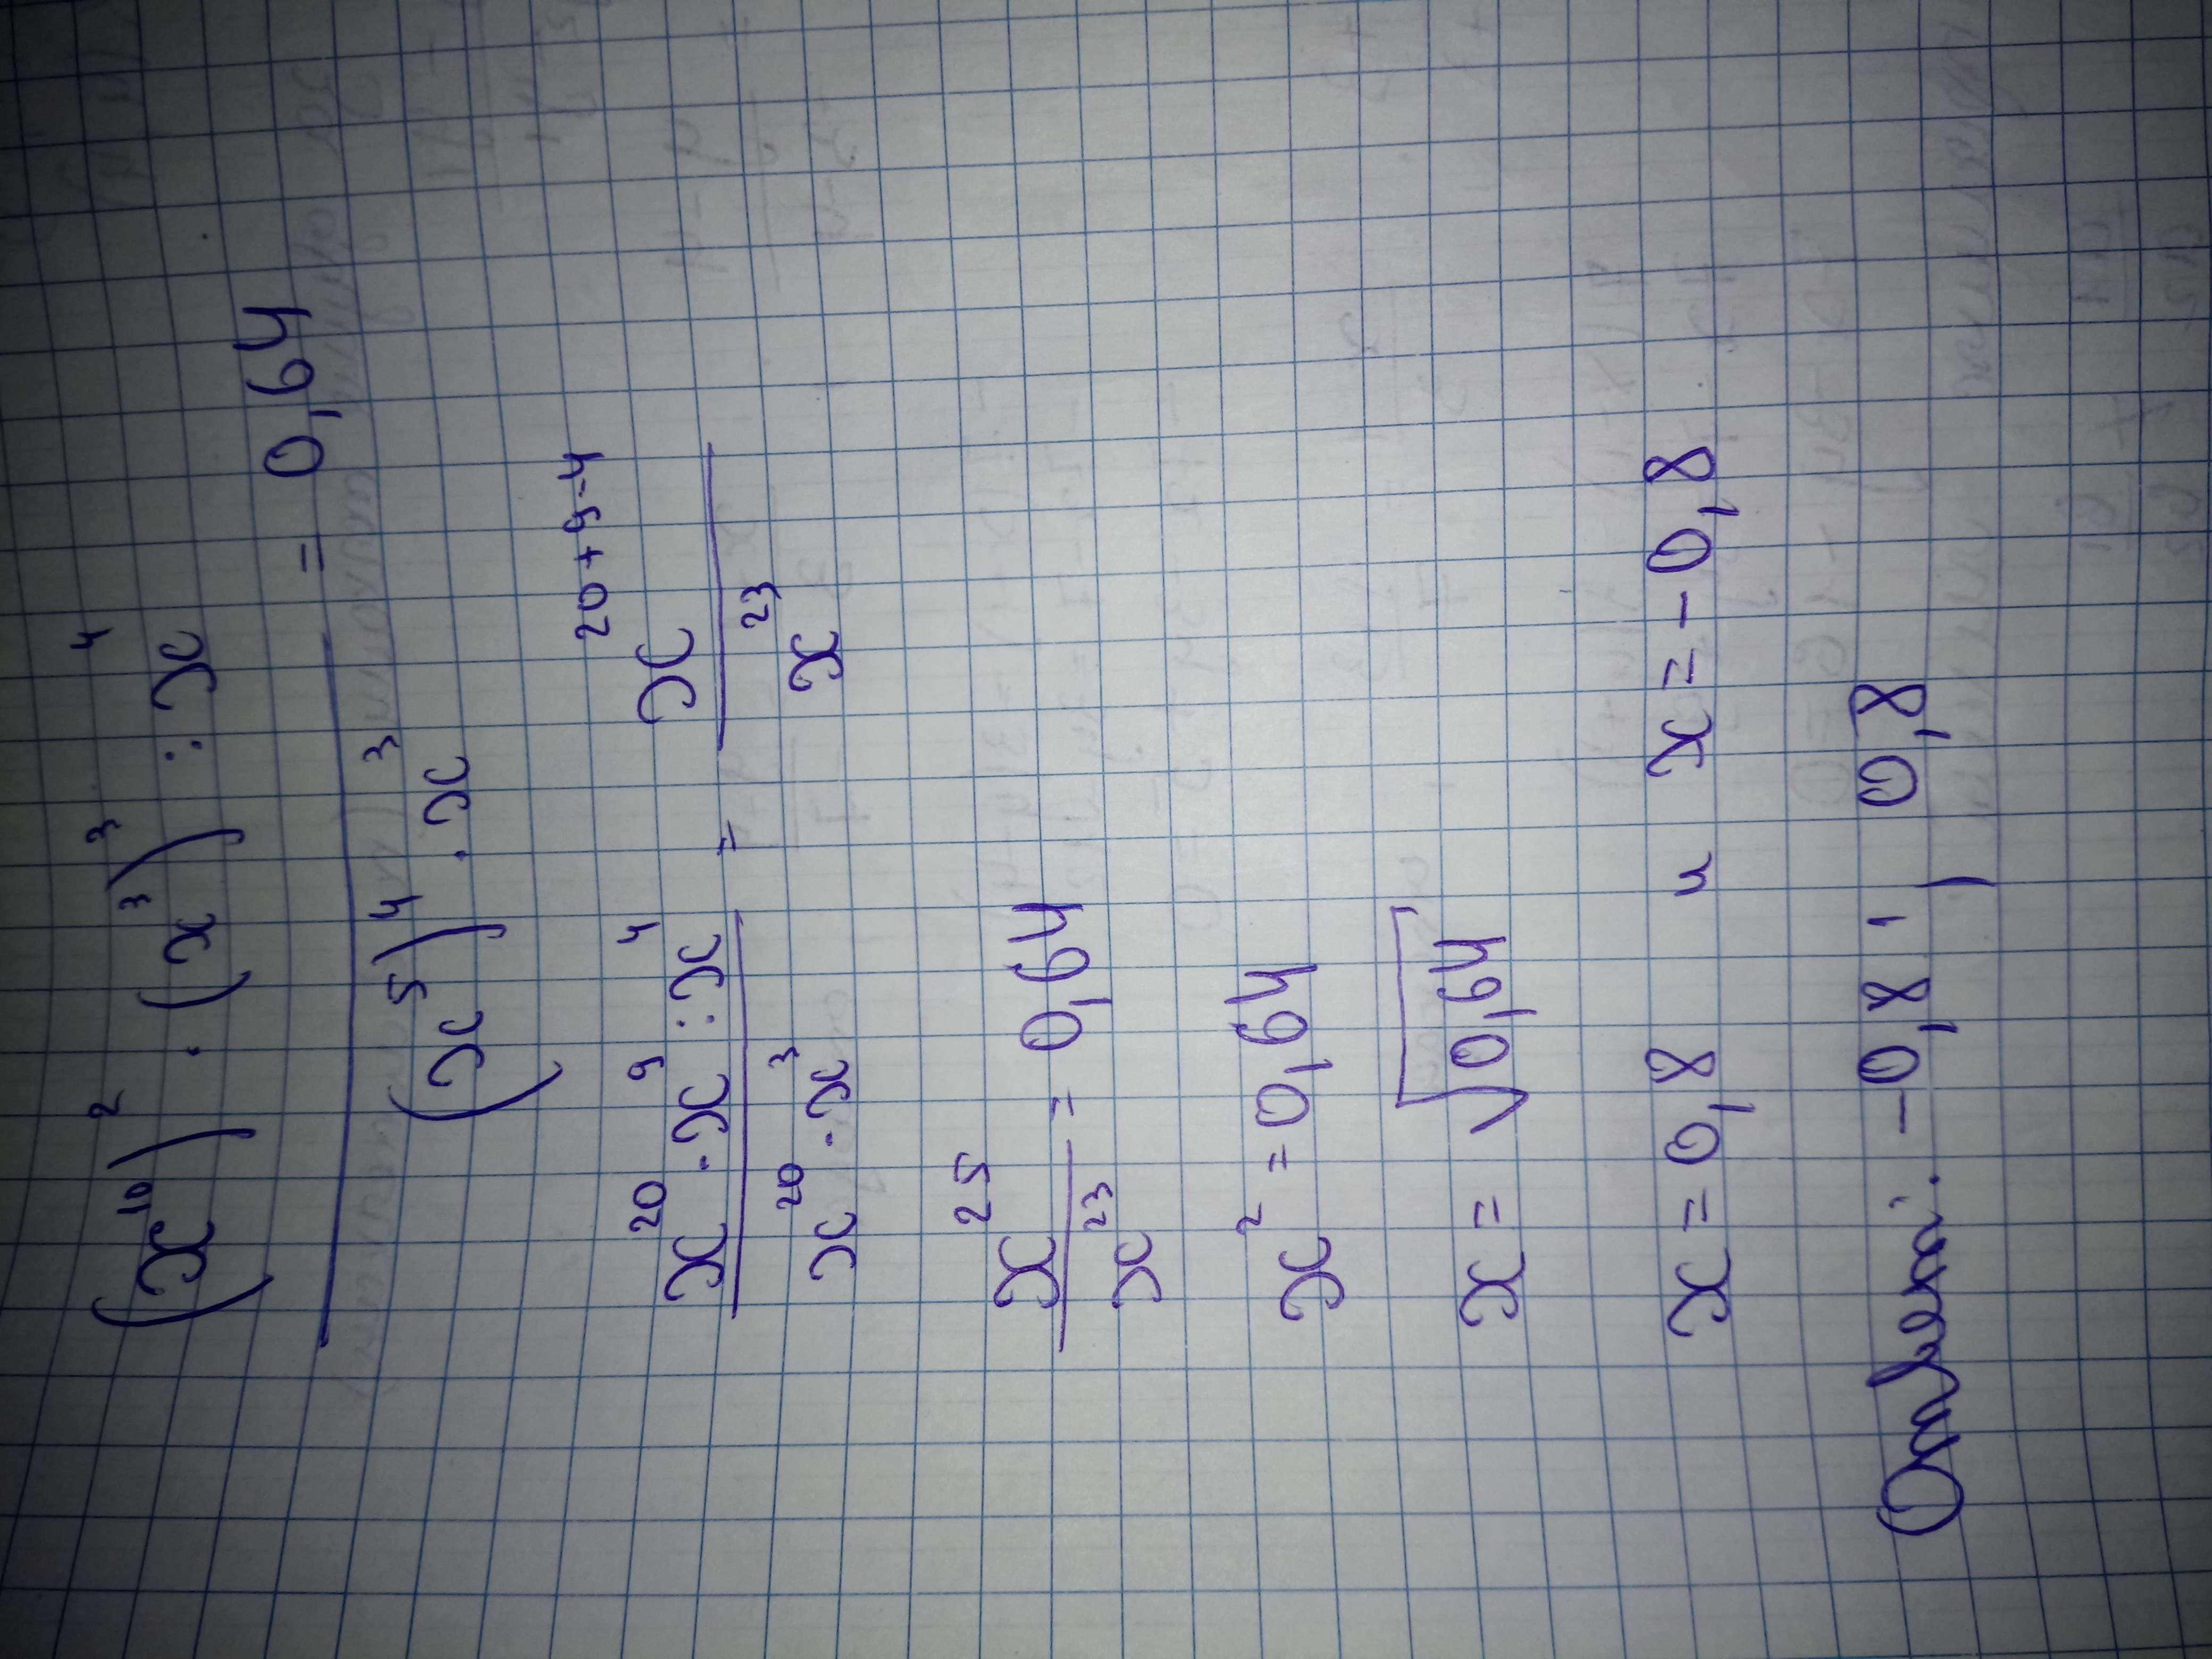 (x¹⁰)² · (x³)³ : x⁴
——— = 0,64
(x⁵)⁴ · x³
x²⁰ · x⁹ : x⁴ / x²⁰ · x³ = x²⁰⁺⁹⁻⁴ / x²³
x²⁵ / x²³ = 0,64
x² = 0,64
x = √0,64
x = 0,8 и x = -0,8
Ответ: -0,8 ; 0,8